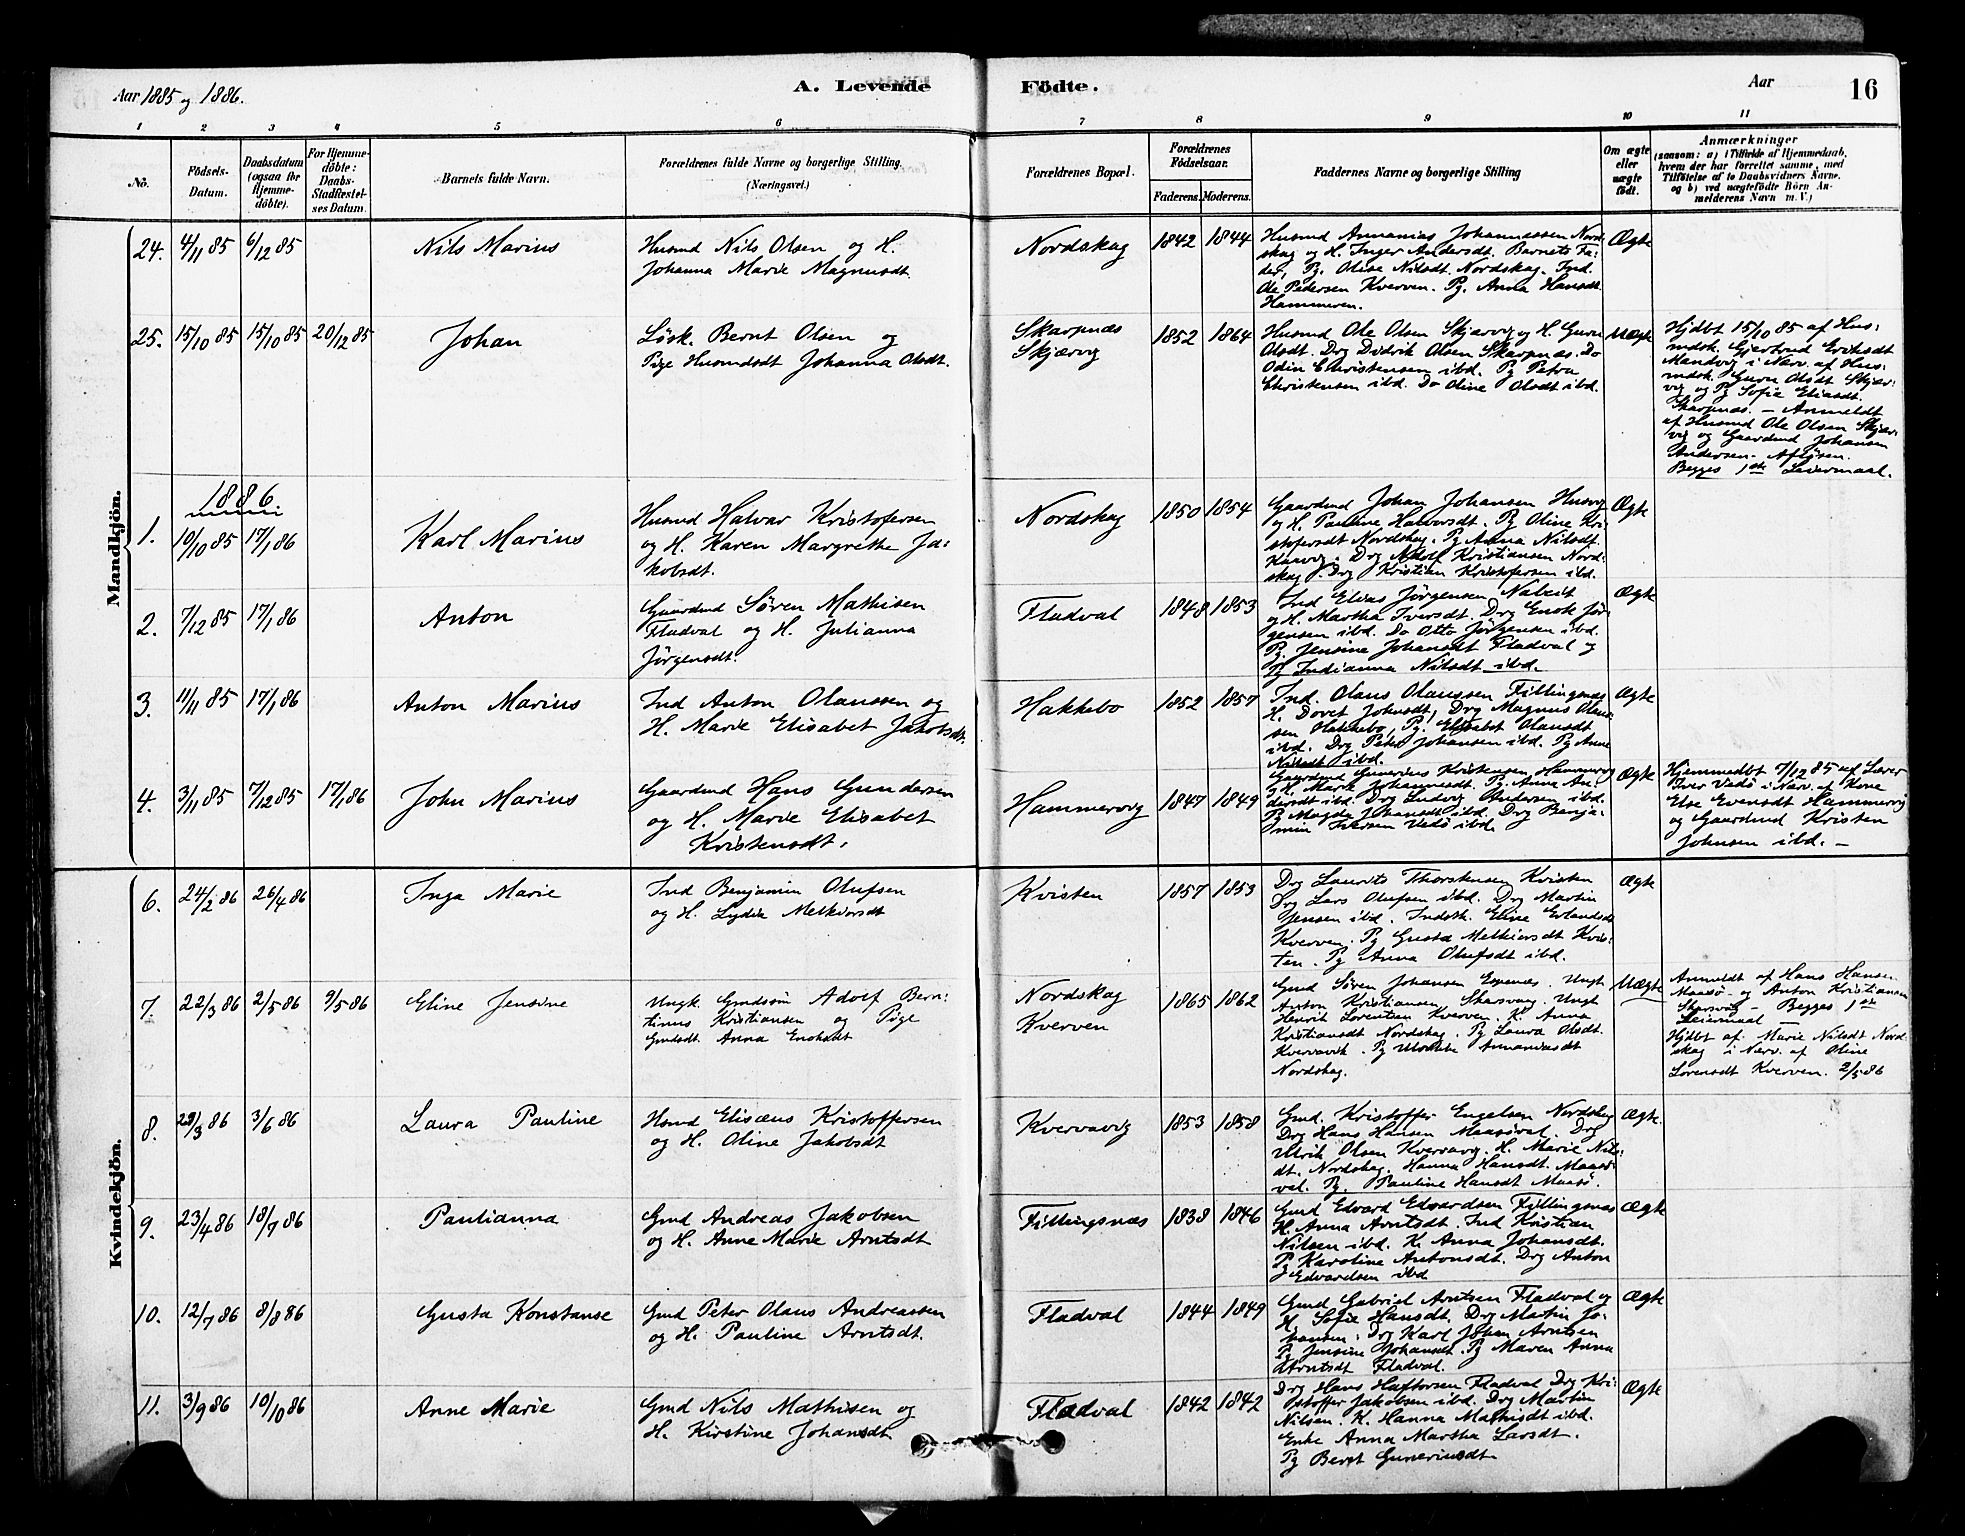 Aar 1885 og 1886.
A. Levende
Födte.
Aar
16
1 2 3 4 5 6 7 8 9 10 11
No.
Födsels-
Datum.
Daabsdatum
(ogsaa for
Hjemme-
döbte).
For Hjemme-
döbte:
Daabs-
Stadfæstel-
ses Datum.
Barnets fulde Navn.
Forældrenes fulde Navne og borgerlige Stilling.
(Næringsvei.)
Forældrenes Bopæl.
Forældrenes
Födselsaar.
Faderens. Moderens.
Faddernes Navne og borgerlige Stilling
Om ægte
eller
uægte
födt.
Anmærkninger
(saasom: a) i Tilfælde af Hjemmedaab,
hvem der har forrettet samme, med
Tilföielse af to Daabsvidners Navne.
og b) ved uægtefödte Börn An-
melderens Navn m. V.)
Mandkjön.
24. 4/11 85 6/12 85
Nils Marius
Husmd Nils Olsen og H.
Johanna Marie Magnusdt.
Nordskag
1842 1844
Husmd Annanias Johannessen Nord-
skag og H. Inger Andersdt. Barnets Fa-
der, Pg. Oline Nilsdt. Nordskag. Ind.
Ole Pedersen Kverven. Pg. Anna Hansdt
Hammeren.
Ægte
25. 15/10 85 15/10 85 20/12 85
Johan
Løsk. Bernt Olsen og
Pige Husmdsdt Johanna Olsdt.
Skarpnæs
Skjærvig
1852 1864
Husmd Ole Olsen Skjærvig og H. Guru
Olsdt. Drg Didrik Olsen Skarpnæs. Do
Odin Christensen ibd. Pg Petra
Christensen ibd. Do Oline Olsdt ibd.
Uægte
Hjdbt 15/10 85 af Hus:
mdsk. Gjertrud Eriksdt
Mandvig i Nærv. af Hus-
mdsk. Guru Olsdt Skjær-
vig og Pg Sofie Eliasdt.
Skarpnæs. – Anmeldt
af Husmd Ole Olsen Skjær-
vig og Gaardmd Johansen
Andersen. Afløsen.
Begges 1ste Leiermaal.
1886
1. 10/10 85 17/1 86
Karl Marius
Husmd Halvar Kristofersen
og H. Karen Margrethe Ja:
kobsdt.
Nordskag
1850 1854
Gaardmd Johan Johansen Husvig
og H. Pauline Halvorsdt. Pg Oline Kri-
stofersdt Nordskag. Pg Anna Nilsdt.
Kaavig. Drg Adolf Kristiansen Nord-
skag. Drg Kristian Kristofersen ibd.
Ægte
2. 7/12 85 17/1 86
Anton
Gaardmd Søren Mathisen
Fladval og H. Julianna
Jørgensdt.
Fladval
1848 1853
Ind Elias Jørgensen
og H. Martha Iversdt. Drg Enok Jør-
gensen ibd. Do Otto Jørgensen ibd.
Pg. Jensine Johansdt Fladval og
Pg Indianna Nilsdt ibd.
Ægte
3. 11/11 85 17/1 86
Anton Marius
Ind Anton Olaussen og
H. Marie Elisabet Jakobsdt.
Hakkebo
1852 1857
Ind. Olaus Olaussen Fillingsnæs
H. Dovet Johnsdt, Drg Magnus Olaus-
sen Hakkebo, Pg. Elisabet Olausdt
ibd. Drg Peter Johansen ibd. Pg Anne
Nilsdt ibd.
Ægte
4. 3/11 85 7/12 85 17/1 86
John Marius
Gaardmd Hans Gundersen
og H. Marie Elisabet
Kristensdt.
Hammervig
1847 1849
Gaardmd Gunerius Kristensen Hammervig
og H. Marit Johannesdt. Pg. Anne An-
dersdt ibd. Drg Ludvig Andersen ibd.
Pg Magda Johansdt ibd. Drg Benja-
min Iversen Vedø ibd.
Ægte
Hjemmedbt 7/12 85 af Lærer
Iver Vedö i Nærv. af Kone
Else Evensdt Hammervig
og Gaardmd Kristen
Johnsen ibd. –
Kvindekjön.
6. 24/2 86 26/4 86
Inga Marie
Ind Benjamin Olufsen
og H. Lydia Melkiorsdt
Kvisten
1857 1853
Drg Laurits Thorstensen Kvisten
Drg Lars Olufsen ibd. Drg Martin
Jensen ibd. Indstk. Eline Erlandsdt
Kverven. Pg Gusta Melkiorsdt Kvis:
ten. Pg Anna Olufsdt ibd.
Ægte
7. 22/3 86 2/5 86 9/5 86
Eline Jensine
Ungk. Gmdssøn Adolf Bern:
tinus Kristiansen og Pige
Gmdsdt. Anna Enoksdt
Nordskag
Kverven
1865 1862
Gmd Søren Johansen Espenes. Ungk
Anton Kristiansen Skarsvaag. Ungk
Henrik Lorentsen Kverven. K. Anna
Kristiansdt Nordskag. Pg Laura Olsdt.
Kvervavik. Pg Ulrikke Annaniasdt
Nordskag.
Uægte
Anmeldt af Hans Hansen
Maasø og Anton Kristiansen
Skarsvåg – Begges 1ste
Leiermaal –
Hjdbt af Marie Nilsdt Nord-
skag i Nærv. af Oline
Lorensdt Kverven. 2/5 86
8. 28/3 86 3/6 86
Laura Pauline
Hsmd Elisæus Kristoffersen
og H. Oline Jakobsdt
Kvervavig
1853 1858
Gmd. Kristoffer Engelsen Nordskag
Drg Hans Hansen Maasøval. Drg
Ulrik Olsen Kvervavig. H. Marie Nils:
dt. Nordskag. Hanna Hansdt. Maasø-
val. Pg. Pauline Hansdt Maasø.
Ægte.
9. 23/4 86 18/7 86
Paulianna
Gmd Andreas Jakobsen
og H. Anne Marie Arntsdt
Fillingsnæs
1838 1846
Gmd Edvard Edvardsen Fillingsnæs
H. Anna Arntsdt. Ind Kristian
Nilsen ibd. K. Anna Johansdt.
Pg Karoline Antonsdt. Drg Anton
Edvardsen ibd
Ægte
10. 12/7 86 8/8 86
Gusta Konstanse
Gmd Peter Olaus Andreassen
og H. Pauline Arntsdt.
Fladval
1844 1849
Gmd Gabriel Arntsen Fladval og
H. Sofie Hansdt. Drg Matin Jo-
hansen. Drg Karl Johan Arntsen
Pg Jensine Johansdt. Pg Maren Anna
Arntsdt Fladval.
Ægte
11. 3/9 86 10/10 86
Anne Marie
Gmd Nils Mathisen og
H. Kirstine Johansdt.
Fladval
1842 1842
Drg Hans Haftorsen Fladval Drg Kri-
stoffer Jakobsen ibd. Drg Martin
Nilsen. K. Hanna Mathisdt ibd.
Enke Anna Martha Larsdt.
Pg Beret Guneriusdt
Ægte